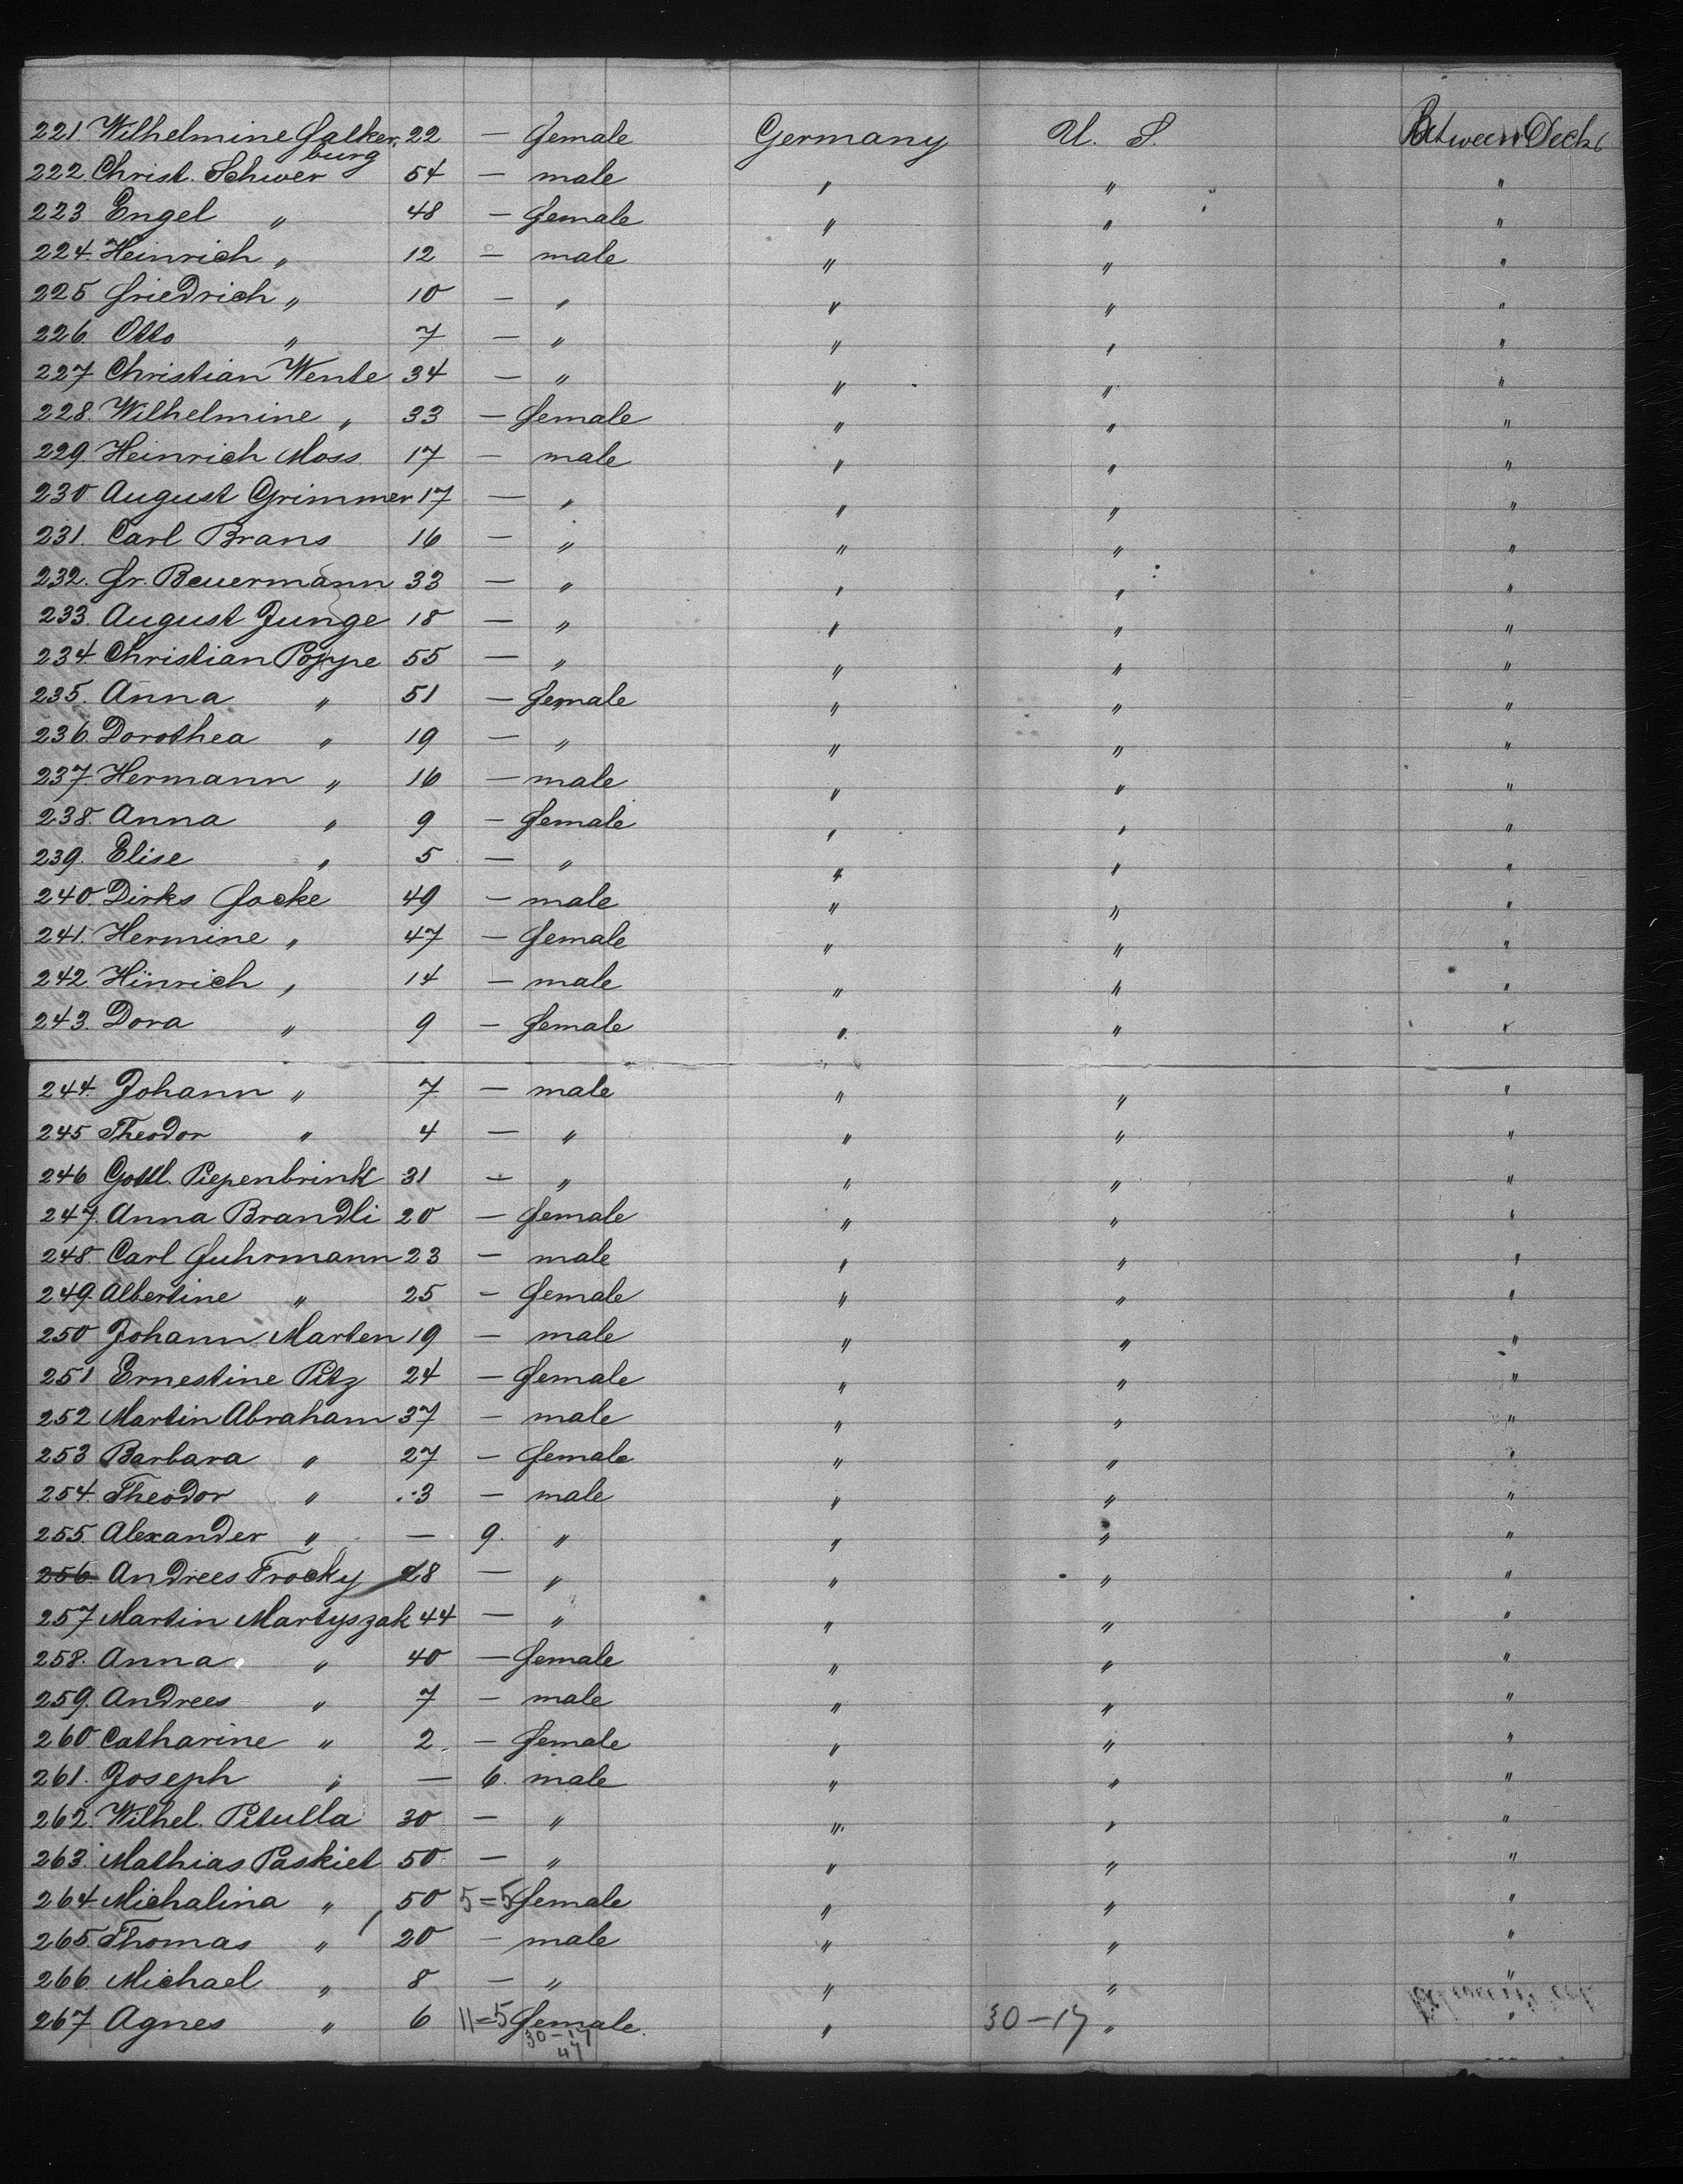 221. Wilhelmine Falken- 22 — female Germany U. S. Between Decks
burg
222. Christ. Schwer 54 — male " " "
223 Engel " 48 — female " " "
224. Heinrich " 12 — male " " "
225 Friedrich " 10 — " " " "
226. Otto " 7 — " " " "
227 Christian Wente 34 — " " " "
228. Wilhelmine " 33 — female " " "
229. Heinrich Moss 17 — male " " "
230 August Grimmer 17 — " " " "
231. Carl Brans 16 — " " " "
232. Fr. Beuermann 33 — " " " "
233. August Junge 18 — " " " "
234. Christian Poppe 55 — " " " "
235. Anna " 51 — female " " "
236. Dorothea " 19 — " " " "
237. Hermann " 16 — male " " "
238. Anna " 9 — female " " "
239. Elise " 5 — " " " "
240. Dirks Focke 49 — male " " "
241. Hermine " 47 — female " " "
242 Hinrich " 14 — male " " "
243. Dora " 9 — female " " "
244. Johann " 7 — male " " "
245 Theodor " 4 — " " " "
246 Gottl. Piepenbrink 31 — " " " "
247. Anna Brandli 20 — female " " "
248. Carl Fuhrmann 23 — male " " "
249. Albertine " 25 — female " " "
250 Johann Marten 19 — male " " "
251 Ernestine Pitz 24 — female " " "
252 Martin Abraham 37 — male " " "
253 Barbara " 27 — female " " "
254. Theodor " 3 — male " " "
255. Alexander " — 9. " " " "
256. Andrees Trocky 28 — " " " "
257 Martin Martyszak 44 — " " " "
258. Anna " 40 — female " " "
259. Andrees " 7 — male " " "
260. Catharine " 2 — female " " "
261. Joseph " — 6. male " " "
262. Wilhel. Pitulla 30 — " " " "
263. Mathias Paskiet 50 — " " " "
264. Michalina " 50 5=5 female " " "
265. Thomas " 20 — male " " "
266. Michael " 8 — " " " "
267 Agnes " 6 11=5 female. " 30-17 " "
30-17
47